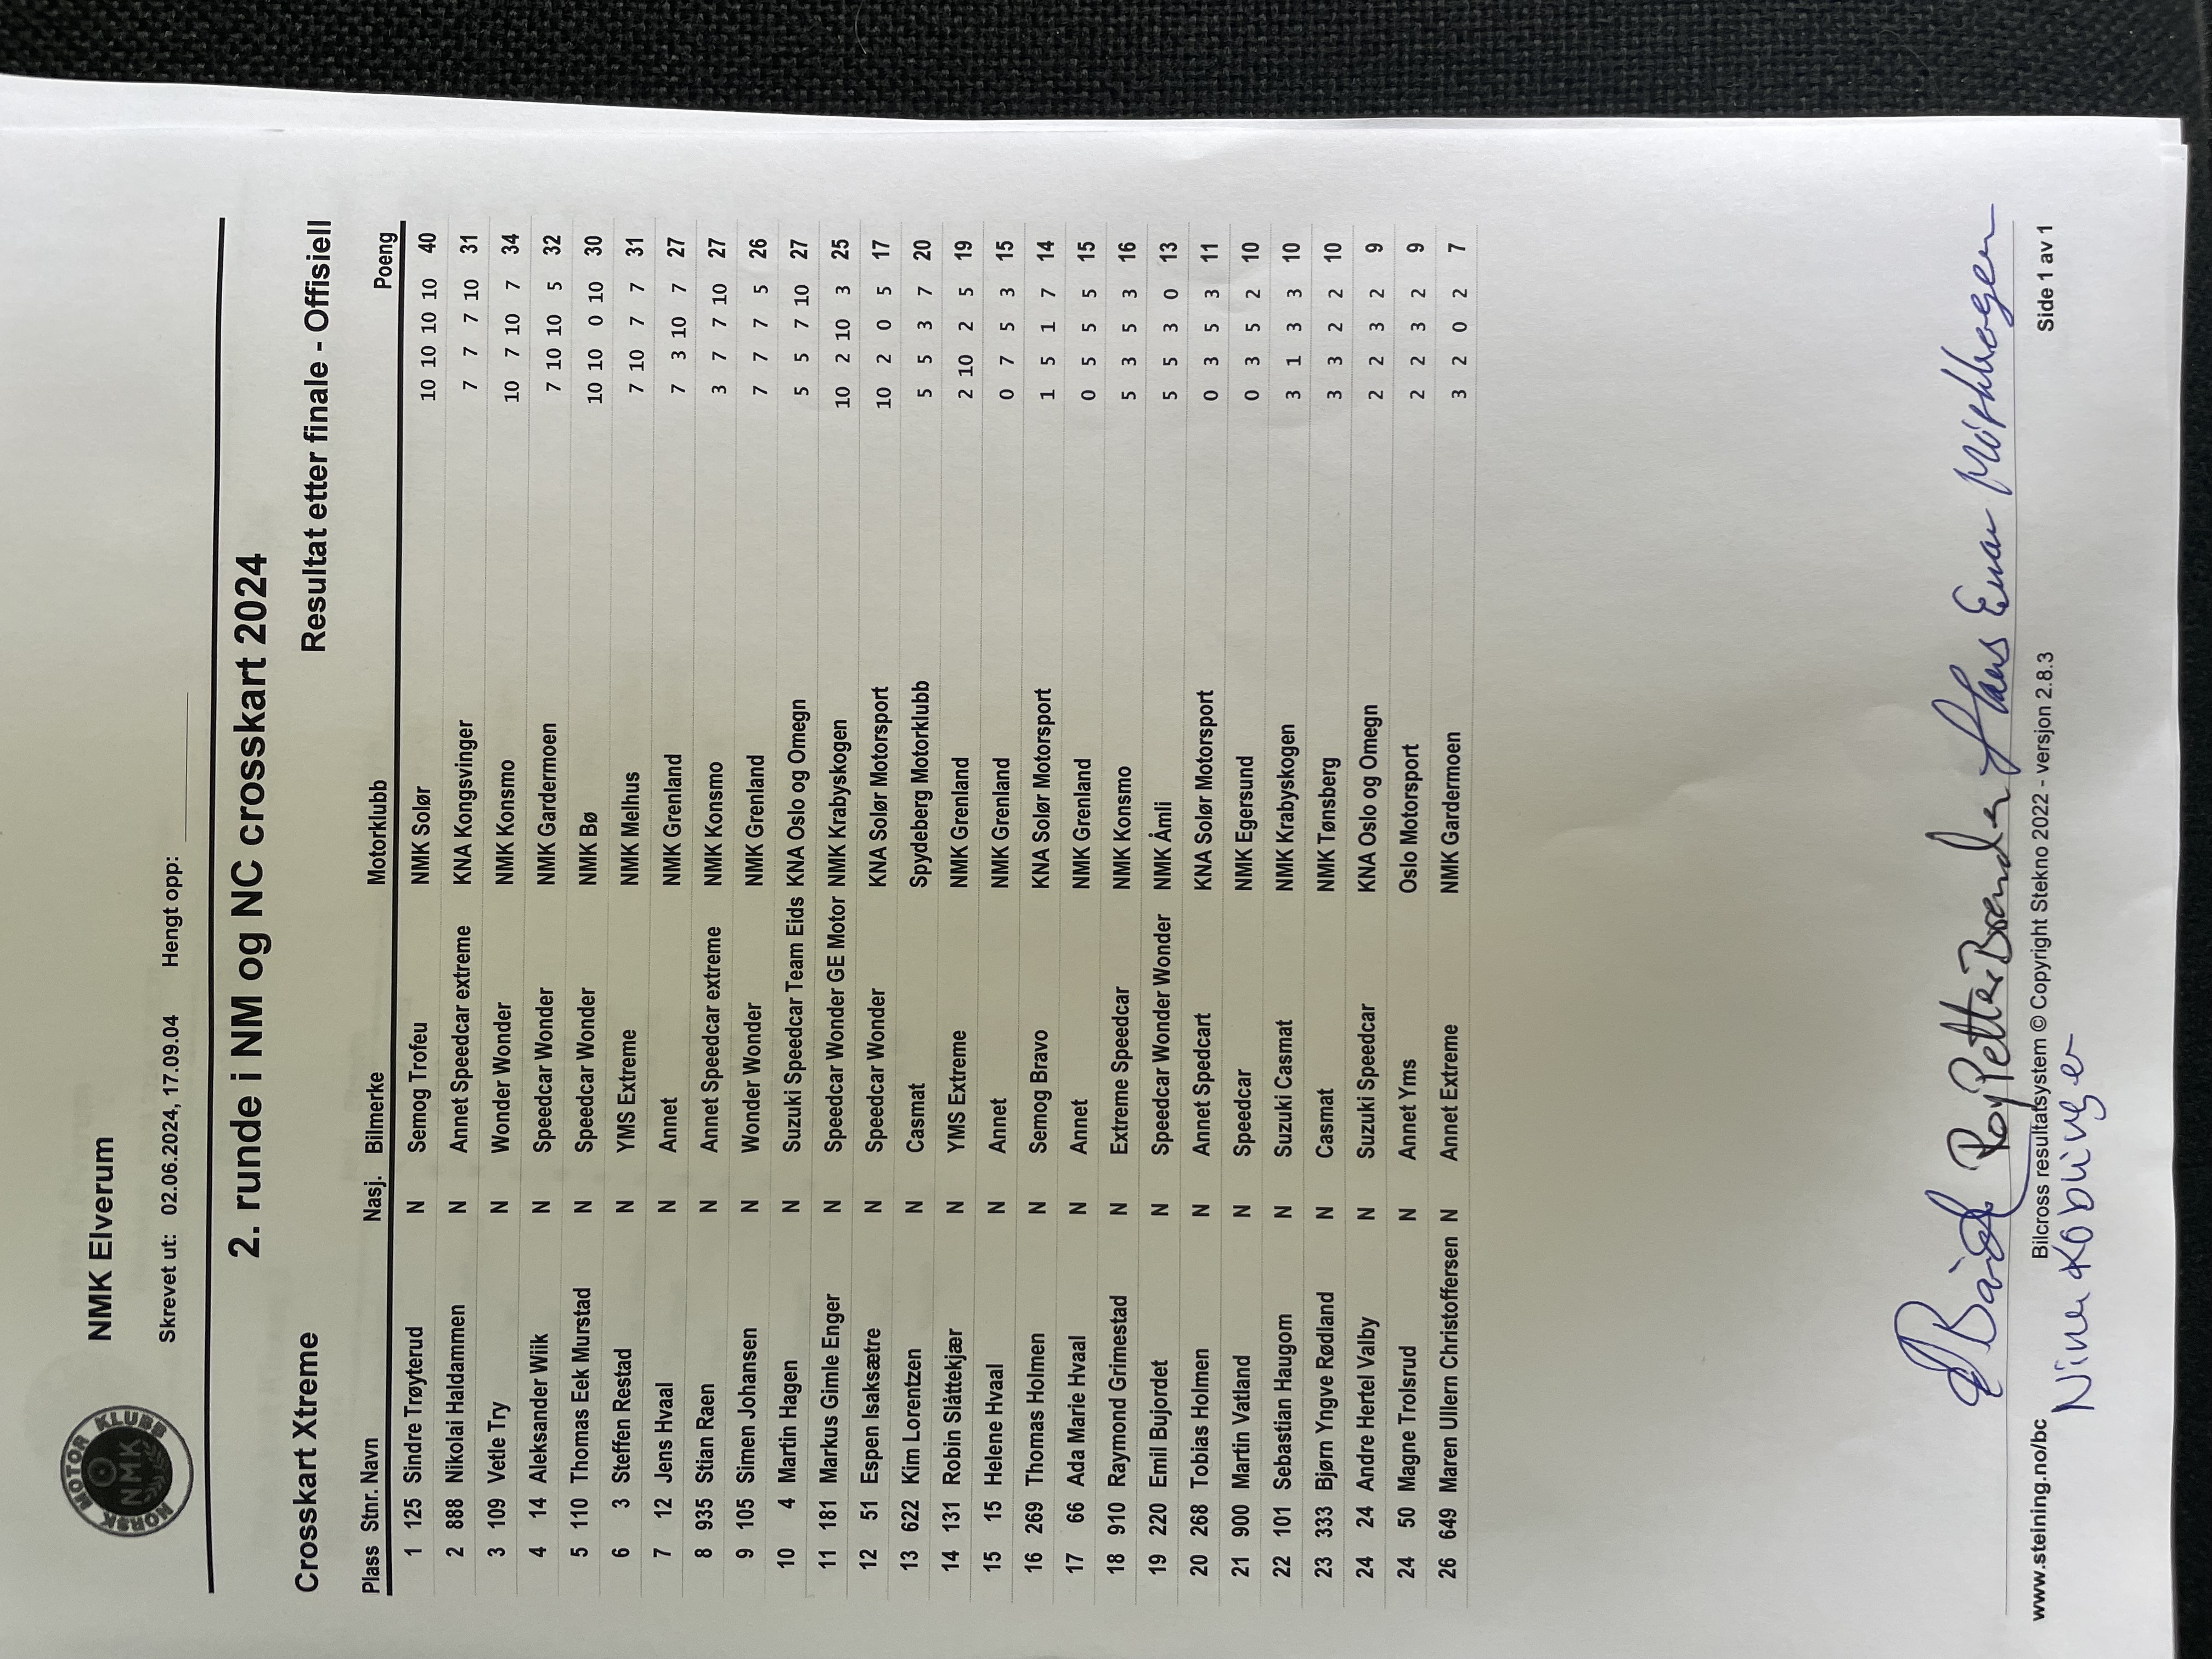 NORSK MOTOR KLUBB
NMK
NMK Elverum
Skrevet ut: 02.06.2024, 17.09.04 Hengt opp:
2. runde i NM og NC crosskart 2024
Crosskart Xtreme Resultat etter finale - Offisiell
Plass Stnr. Navn Nasj. Bilmerke Motorklubb Poeng
1 125 Sindre Trøyterud N Semog Trofeu NMK Solør 10 10 10 10 40
2 888 Nikolai Haldammen N Annet Speedcar extreme KNA Kongsvinger 7 7 7 10 31
3 109 Vetle Try N Wonder Wonder NMK Konsmo 10 7 10 7 34
4 14 Aleksander Wiik N Speedcar Wonder NMK Gardermoen 7 10 10 5 32
5 110 Thomas Eek Murstad N Speedcar Wonder NMK Bø 10 10 0 10 30
6 3 Steffen Restad N YMS Extreme NMK Melhus 7 10 7 7 31
7 12 Jens Hvaal N Annet NMK Grenland 7 3 10 7 27
8 935 Stian Raen N Annet Speedcar extreme NMK Konsmo 3 7 7 10 27
9 105 Simen Johansen N Wonder Wonder NMK Grenland 7 7 7 5 26
10 4 Martin Hagen N Suzuki Speedcar Team Eids KNA Oslo og Omegn 5 5 7 10 27
11 181 Markus Gimle Enger N Speedcar Wonder GE Motor NMK Krabyskogen 10 2 10 3 25
12 51 Espen Isaksætre N Speedcar Wonder KNA Solør Motorsport 10 2 0 5 17
13 622 Kim Lorentzen N Casmat Spydeberg Motorklubb 5 5 3 7 20
14 131 Robin Slåttekjær N YMS Extreme NMK Grenland 2 10 2 5 19
15 15 Helene Hvaal N Annet NMK Grenland 0 7 5 3 15
16 269 Thomas Holmen N Semog Bravo KNA Solør Motorsport 1 5 1 7 14
17 66 Ada Marie Hvaal N Annet NMK Grenland 0 5 5 5 15
18 910 Raymond Grimestad N Extreme Speedcar NMK Konsmo 5 3 5 3 16
19 220 Emil Bujordet N Speedcar Wonder Wonder NMK Åmli 5 5 3 0 13
20 268 Tobias Holmen N Annet Spedcart KNA Solør Motorsport 0 3 5 3 11
21 900 Martin Vatland N Speedcar NMK Egersund 0 3 5 2 10
22 101 Sebastian Haugom N Suzuki Casmat NMK Krabyskogen 3 1 3 3 10
23 333 Bjørn Yngve Rødland N Casmat NMK Tønsberg 3 3 2 2 10
24 24 Andre Hertel Valby N Suzuki Speedcar KNA Oslo og Omegn 2 2 3 2 9
24 50 Magne Trolsrud N Annet Yms Oslo Motorsport 2 2 3 2 9
26 649 Maren Ullern Christoffersen N Annet Extreme NMK Gardermoen 3 2 0 2 7
Roy Petter Hans Einar
www.steining.no/bc Bilcross resultatsystem © Copyright Stekno 2022 - versjon 2.8.3 Side 1 av 1